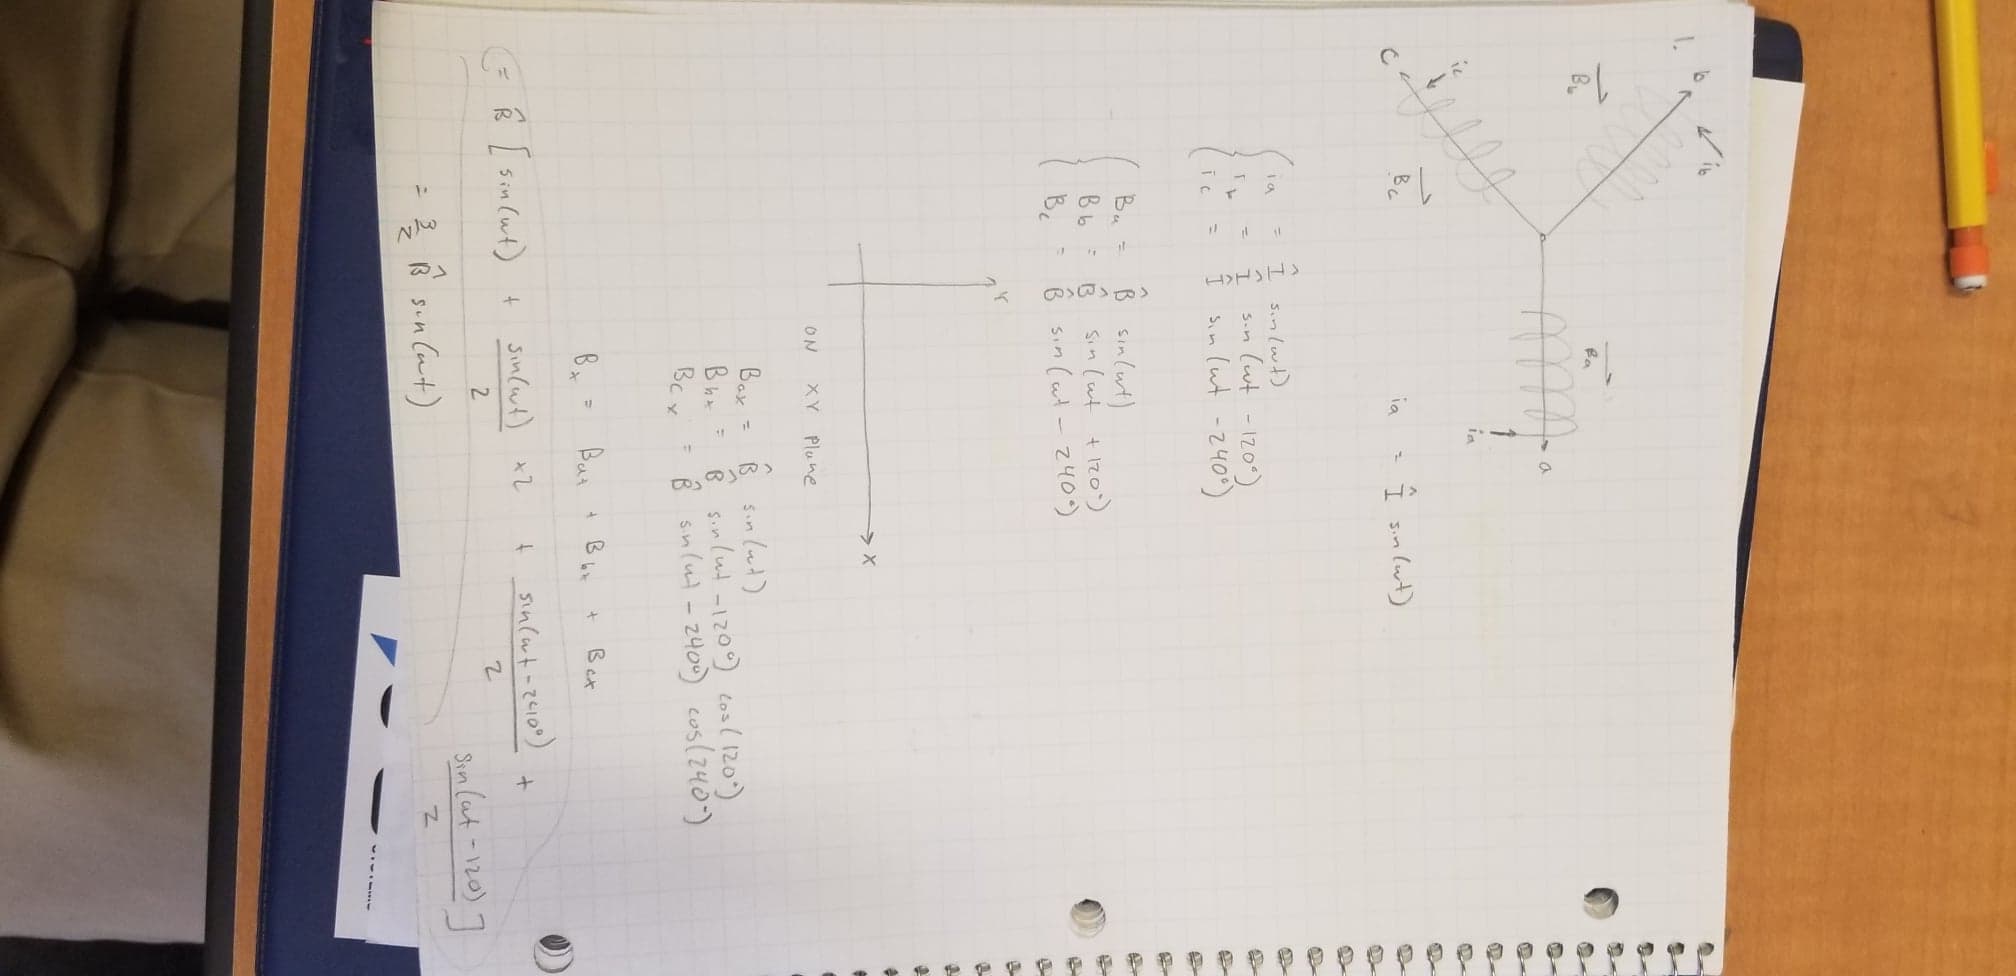 1.
b
ib
Bb
Ba
a
ia
ic
c
Bc
ia = Î sin(wt)
ia = Î sin(wt)
ib = Î sin(wt -120°)
ic = Î sin(wt -240°)
Ba = B̂ sin(wt)
Bb = B̂ sin(wt +120°)
Bc = B̂ sin(wt - 240°)
Y
X
ON XY Plane
Bax = B̂ sin(wt)
Bbx = B̂ sin(wt -120°) cos(120°)
Bcx = B̂ sin(wt - 240°) cos(240°)
Bx = Bax + Bbx + Bcx
= B̂ [ sin(wt) + sin(wt)/2 x2 + sin(wt-240°)/2 +
sin(wt -120)/2 ]
= 3/2 B̂ sin(wt)